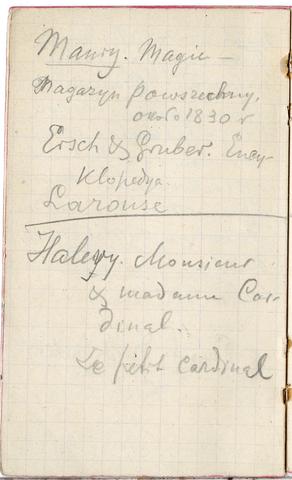 Maury. Magie –
Magazyn powszechny,
około 1830 r
Ersch & Gruber. Ency-
klopedya.
Larousse
Halevy. Monsieur
& madame Car-
dinal.
Le petit cardinal